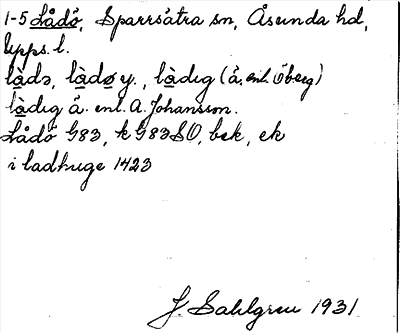 1-5 Lådö, Sparrsåtra sn, Åsunda hd,
Upps. l.
làdə, làdøy., làdıg (ä. enl. Öberg)
làdıg ä. enl. A. Johansson.
Lådö G83, k G83 SO, bek, ek
i ladhuge 1423
J. Sahlgren 1931